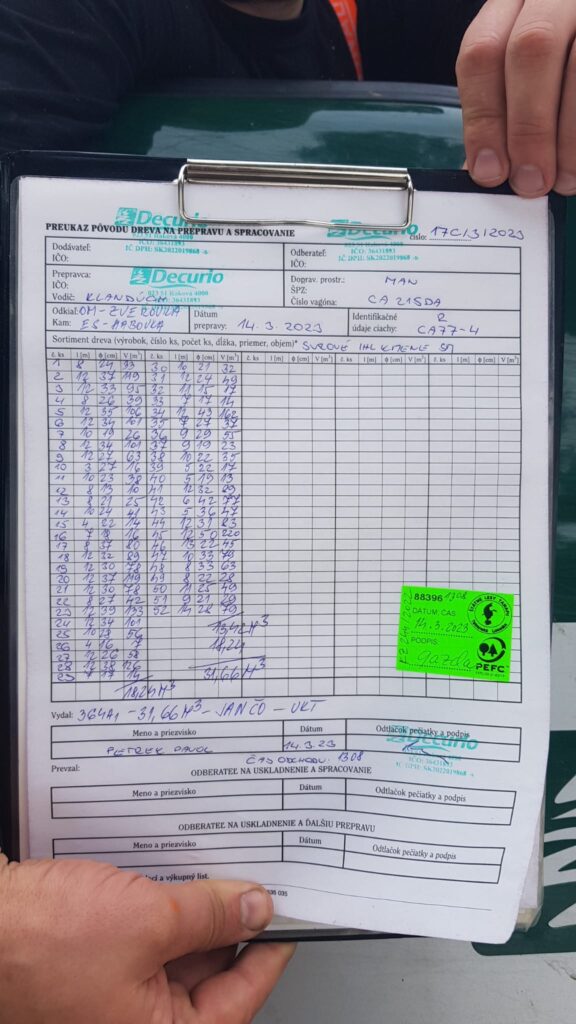 Decurio
023 51 Raková 4000
IČO: 36431893
IČ DPH: SK2022019868
PREUKAZ PÔVODU DREVA NA PREPRAVU A SPRACOVANIE
Decurio
IČO: 36431893
IČ DPH: SK2022019868
číslo: 17C/3/2023
Dodávateľ:
IČO:
Odberateľ:
IČO:
Decurio
023 51 Raková 4000
IČO: 36431893
IČ DPH: SK2022019868
Prepravca:
IČO:
Vodič: KLANDUCH
Doprav. prostr.: MAN
ŠPZ:
Číslo vagóna: CA 215DA
Odkiaľ: OM-ZVEROVKA
Kam: ES-HABOVKA
Dátum prepravy: 14.3.2023
Identifikačné údaje ciachy: R CA77-4
Sortiment dreva (výrobok, číslo ks, počet ks, dĺžka, priemer, objem)* SUROVÉ IHL KMENE
č. ks l [m] ϕ [cm] V [m³] č. ks l [m] ϕ [cm] V [m³] č. ks l [m] ϕ [cm] V [m³] č. ks l [m] ϕ [cm] V [m³] č. ks l [m] ϕ [cm] V [m³]
1 8 24 33 30 10 21 32
2 12 37 119 31 12 24 49
3 12 33 95 32 11 15 17
4 8 26 39 33 7 17 14
5 12 35 106 34 12 43 162
6 12 34 101 35 7 27 37
7 10 19 26 36 9 29 55
8 12 34 101 37 9 19 23
9 12 27 63 38 10 22 35
10 3 27 16 39 5 22 17
11 10 23 38 40 5 19 13
12 8 13 10 41 12 32 89
13 8 21 25 42 6 42 77
14 10 24 41 43 5 36 47
15 4 22 14 44 12 31 83
16 7 18 16 45 12 50 220
17 8 37 80 46 13 22 45
18 12 32 89 47 10 33 79
19 12 30 78 48 8 33 63
20 12 37 119 49 8 22 28
21 12 30 78 50 11 25 49
22 8 27 42 51 9 21 29
23 12 39 133 52 14 28 79
24 12 34 101 13,42 M³
25 10 28 56 18,24
26 4 16 7
27 12 26 58
28 12 38 126 31,66 M³
29 7 17 14
18,24 M³
88396 1308
DÁTUM, ČAS
14.3.2023
PODPIS:
gazda
PEFC
Vydal: 364A1 - 31,66 M³ - JANČO - UKT
Meno a priezvisko Dátum Odtlačok pečiatky a podpis
PETREK PAVOL 14.3.23
Decurio
IČO: 36431893
IČ DPH: SK2022019868
Prevzal: ČAS ODCHODU: 1308
ODBERATEĽ NA USKLADNENIE A SPRACOVANIE
Meno a priezvisko Dátum Odtlačok pečiatky a podpis
ODBERATEĽ NA USKLADNENIE A ĎALŠIU PREPRAVU
Meno a priezvisko Dátum Odtlačok pečiatky a podpis
a výkupný list.